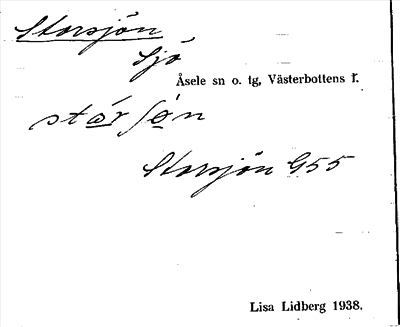 Storsjön
Sjö
Åsele sn o. tg, Västerbottens l.
stårʃön
Storsjön G55
Lisa Lidberg 1938.